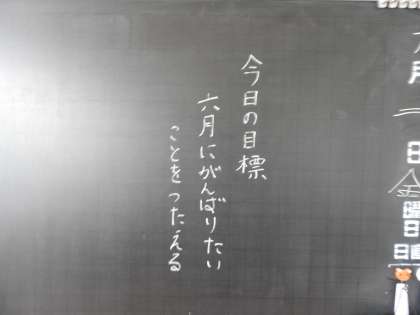 今日の目標
六月にがんばりたい
ことをつたえる
月
一
日
金
曜
日
日直